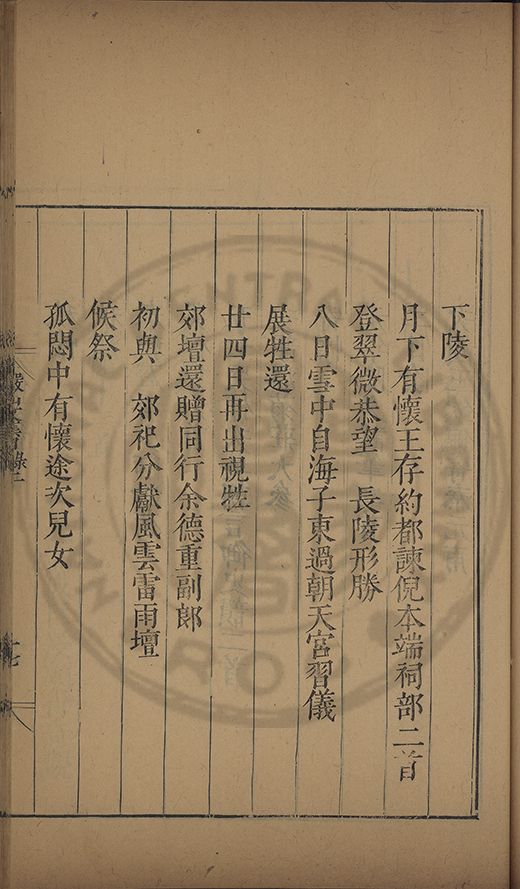 下陵
月下有懷王存約都諫倪本端祠部二首
登翠微恭望　長陵形勝
八日雪中自海子東過朝天宮習儀
展牲還
廿四日再出視牲
郊壇還贈同行余德重副郎
初與　郊祀分獻風雲雷雨壇
候祭
孤悶中有懷途次兒女